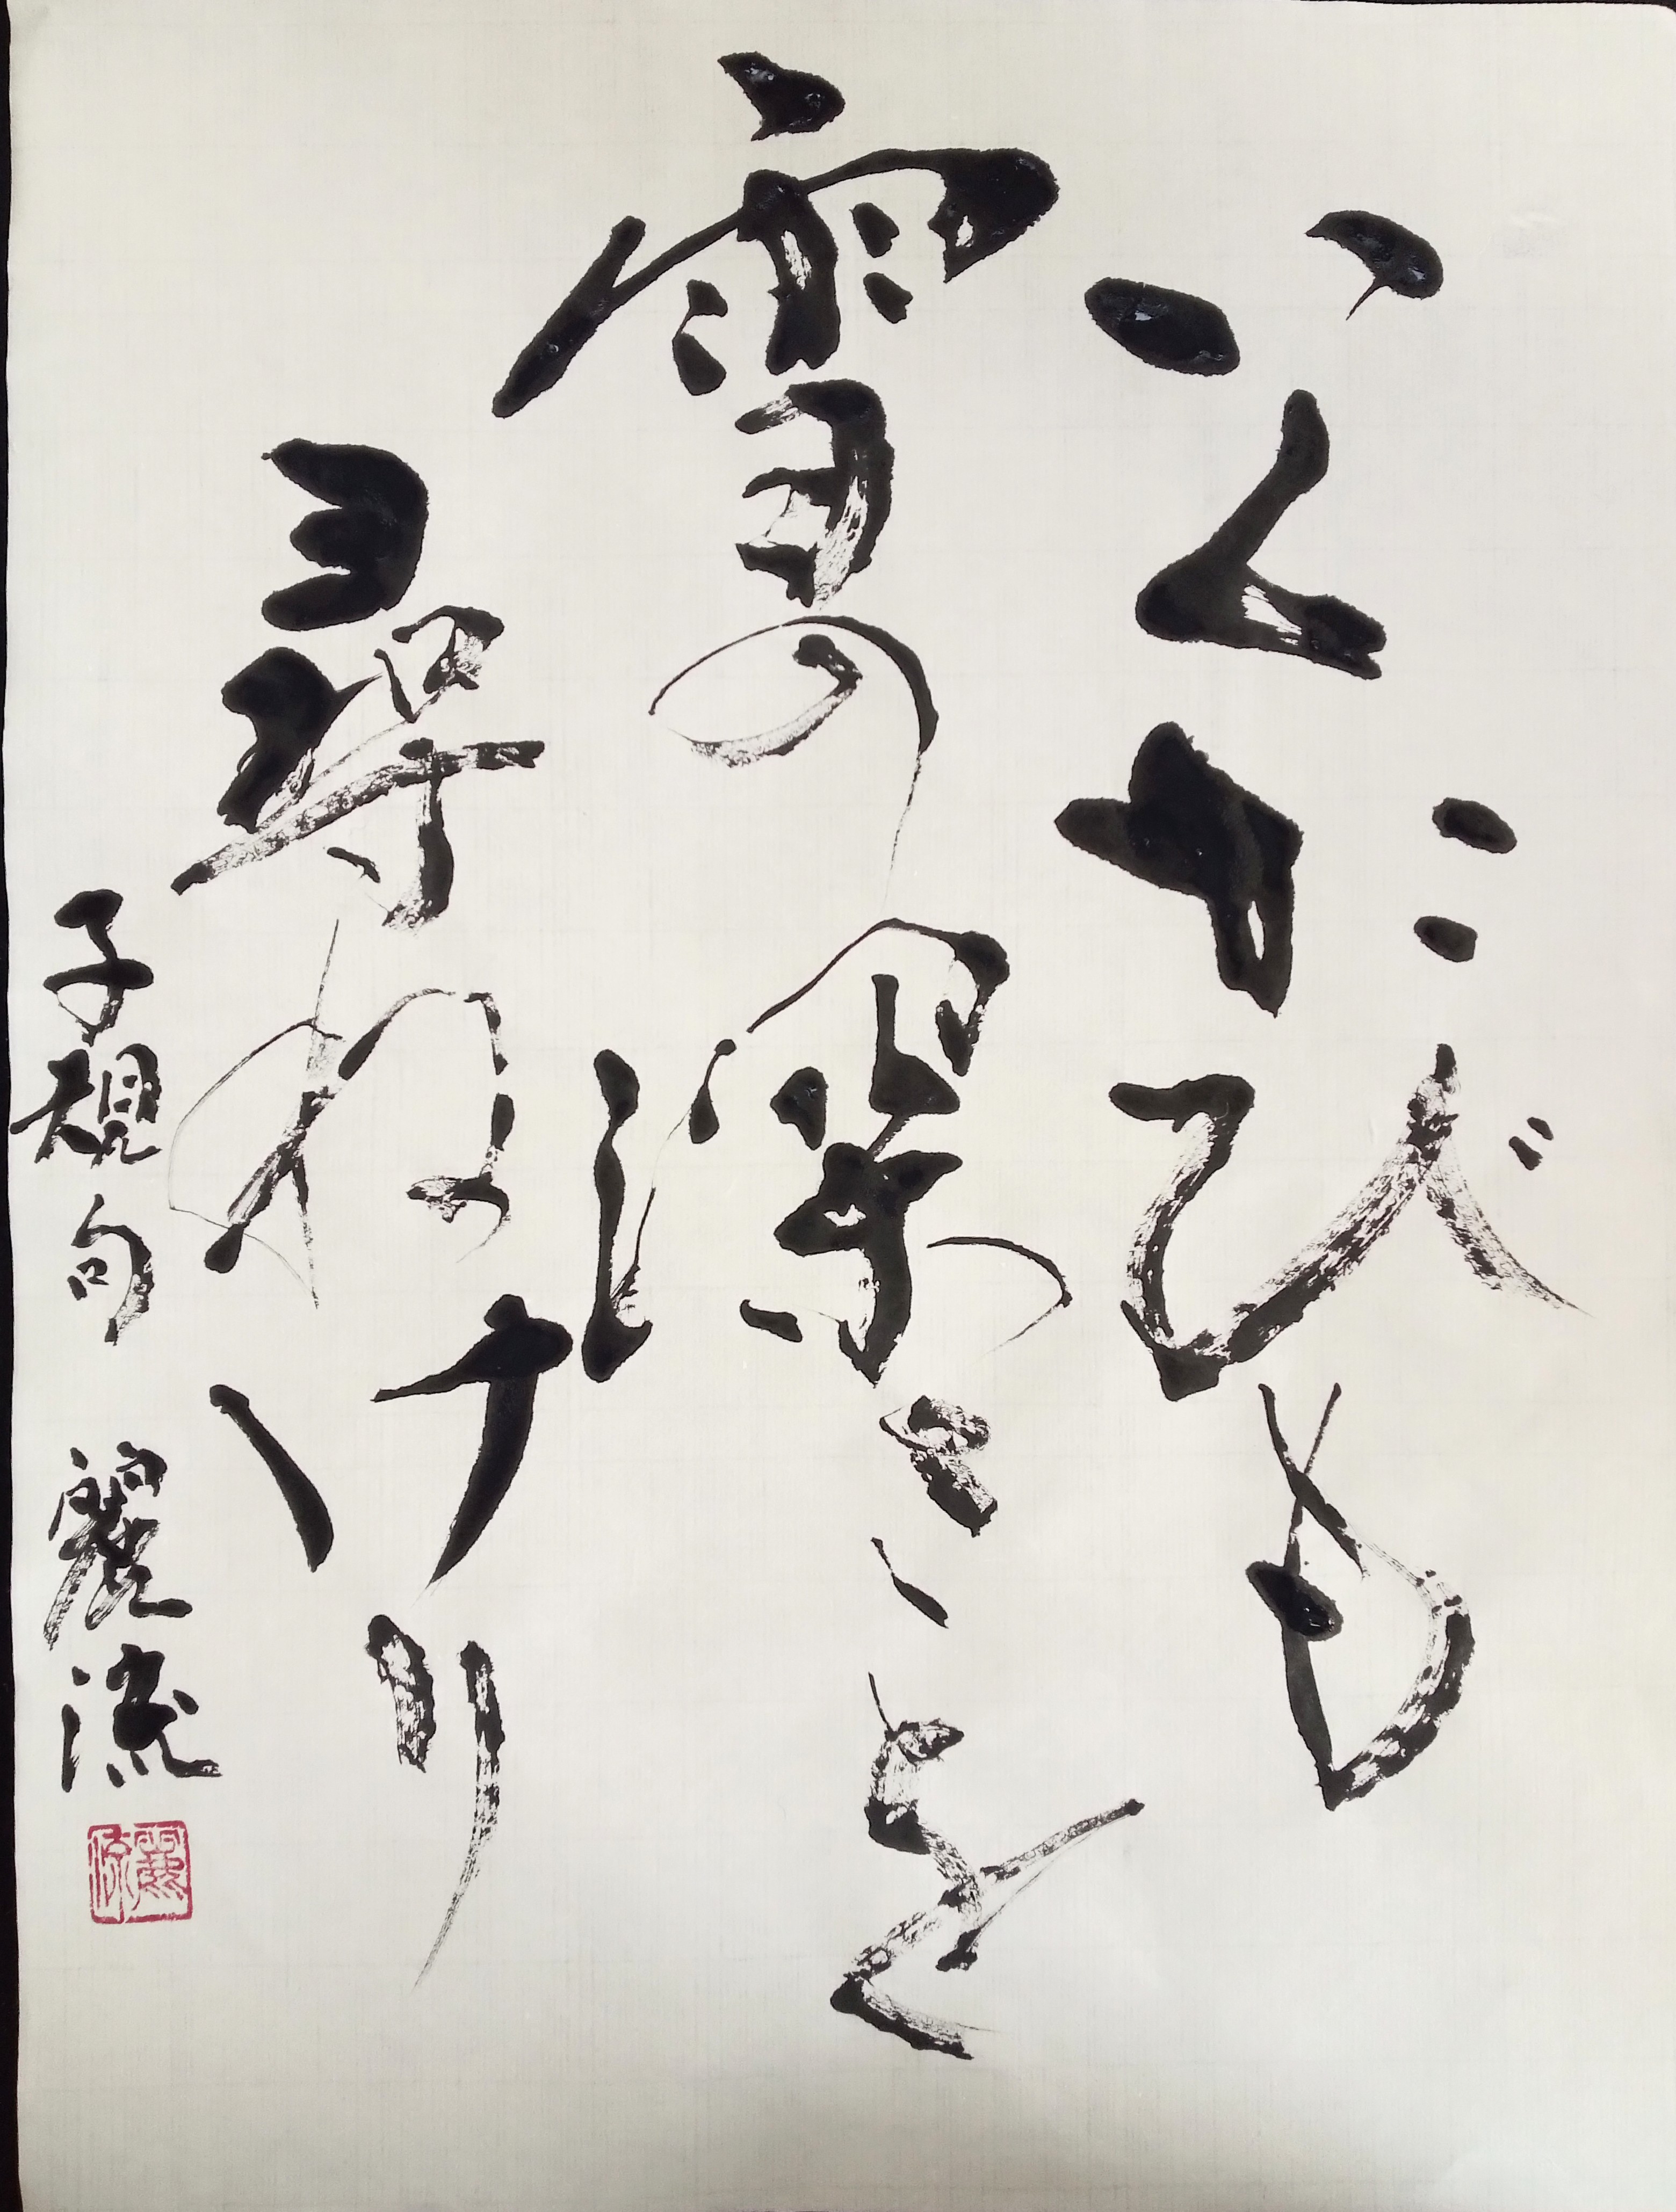 いくたびも
雪の深さを
尋ねけり
子規句 麗流
麗流